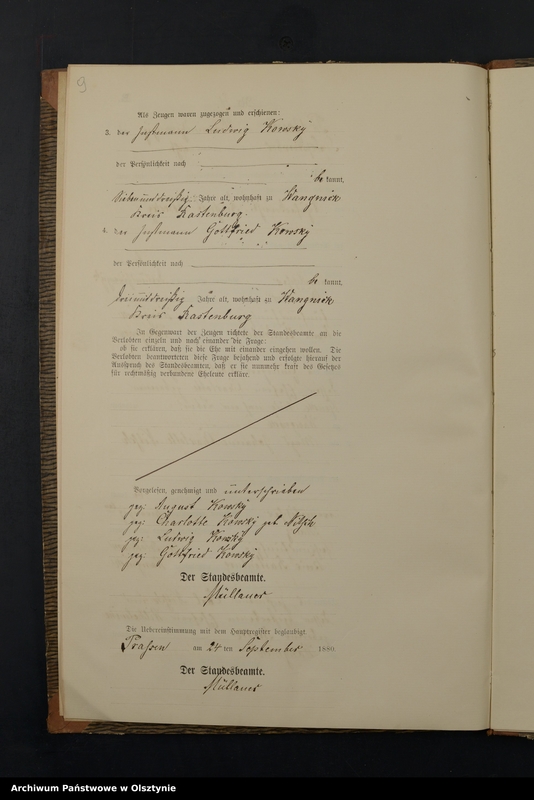 9
Als Zeugen waren zugezogen und erschienen:
3. der Instmann Ludwig Kowsky
der Persönlichkeit nach
be kannt,
Siebenunddreißig Jahre alt, wohnhaft zu Wangnick
Kreis Rastenburg.
4. der Instmann Gottfried Kowsky
der Persönlichkeit nach
be kannt,
dreiunddreißig Jahre alt, wohnhaft zu Wangnick
Kreis Rastenburg
In Gegenwart der Zeugen richtete der Standesbeamte an die
Verlobten einzeln und nach einander die Frage:
ob sie erklären, daß sie die Ehe mit einander eingehen wollen. Die
Verlobten beantworteten diese Frage bejahend und erfolgte hierauf der
Ausspruch des Standesbeamten, daß er sie nunmehr kraft des Gesetzes
für rechtmäßig verbundene Eheleute erkläre.
Vorgelesen, genehmigt und unterschrieben
gez: August Kowsky
gez: Charlotte Kowsky geb.
gez: Ludwig Kowsky
gez: Gottfried Kowsky
Der Standesbeamte.
Müllauer
Die Uebereinstimmung mit dem Hauptregister beglaubigt
Prassen am 24 ten September 1880.
Der Standesbeamte.
Müllauer
Archiwum Państwowe w Olsztynie